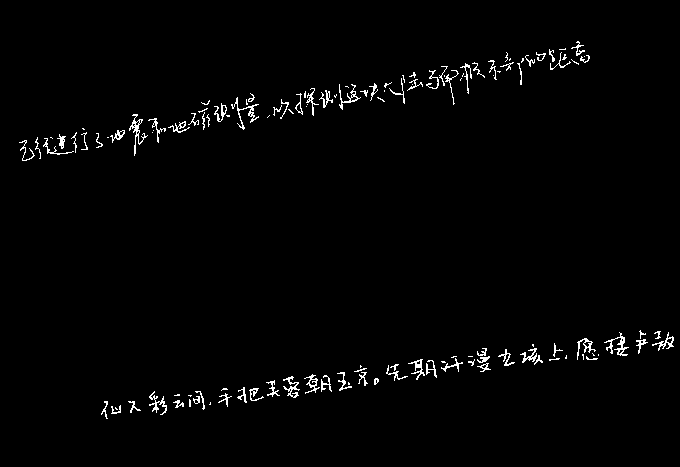 已经进行了地震和地磁测量,以探测这块大陆与的距离
仙人彩云间,手把芙蓉朝玉京。先期汗漫九垓上,愿接卢敖